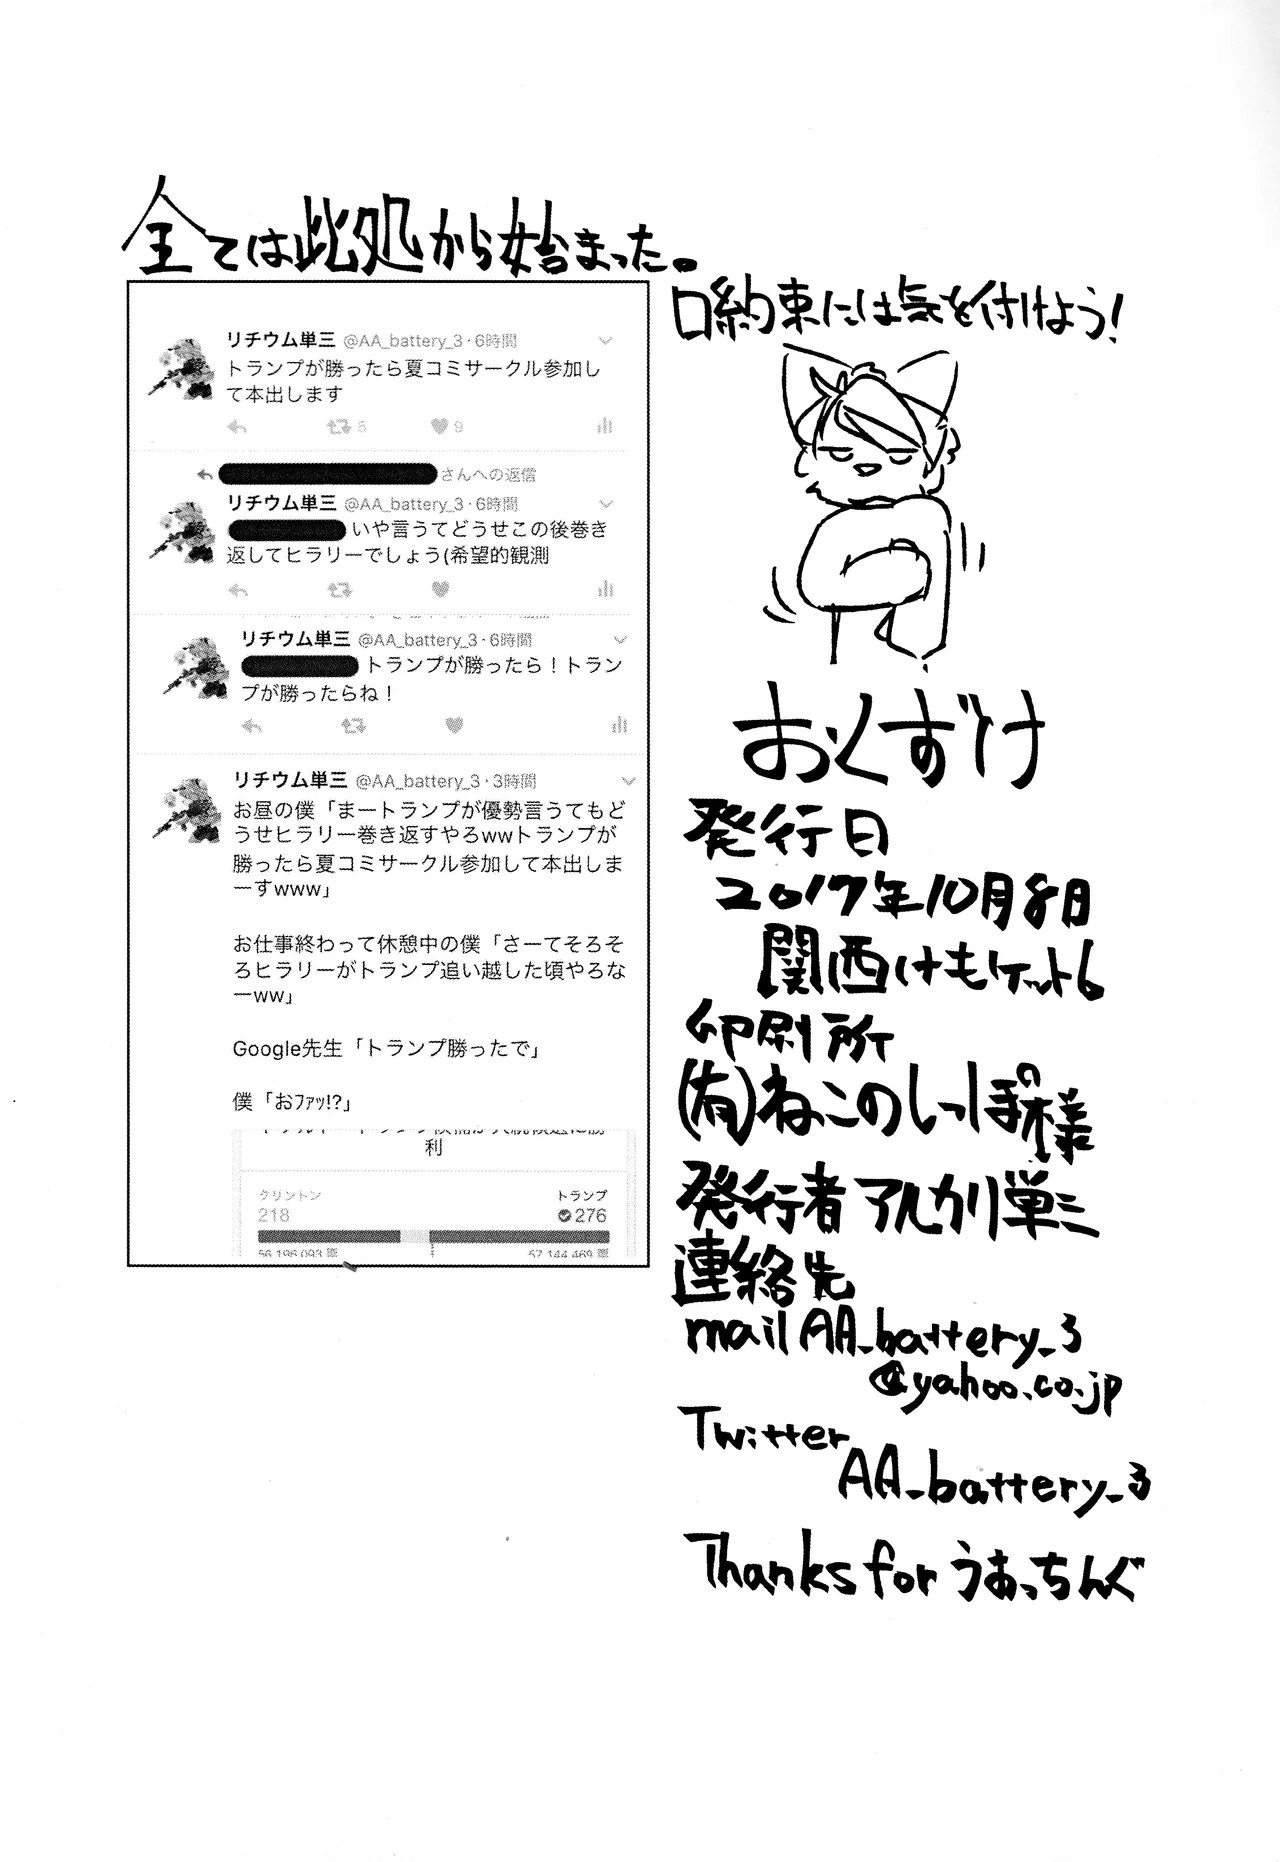 全ては此処から始まった。
リチウム単三 @AA_battery_3・6時間
トランプが勝ったら夏コミサークル参加し
て本出します
5 9
さんへの返信
リチウム単三 @AA_battery_3・6時間
いや言うてどうせこの後巻き
返してヒラリーでしょう(希望的観測
リチウム単三 @AA_battery_3・6時間
トランプが勝ったら！トラン
プが勝ったらね！
リチウム単三 @AA_battery_3・3時間
お昼の僕「まートランプが優勢言うてもど
うせヒラリー巻き返すやろwwトランプが
勝ったら夏コミサークル参加して本出しま
ーすwww」
お仕事終わって休憩中の僕「さーてそろそ
ろヒラリーがトランプ追い越した頃やろな
ーww」
Google先生「トランプ勝ったで」
僕「おﾌｧｯ!?」
利
クリントン トランプ
218 276
56,196,093 票 57,144,469 票
口約束には気を付けよう!
おくづけ
発行日
2017年10月8日
関西けもケット6
印刷所
(有)ねこのしっぽ様
発行者 アルカリ単三
連絡先
mail AA_battery_3
@yahoo.co.jp
Twitter
AA_battery_3
Thanks for うぉっちんぐ